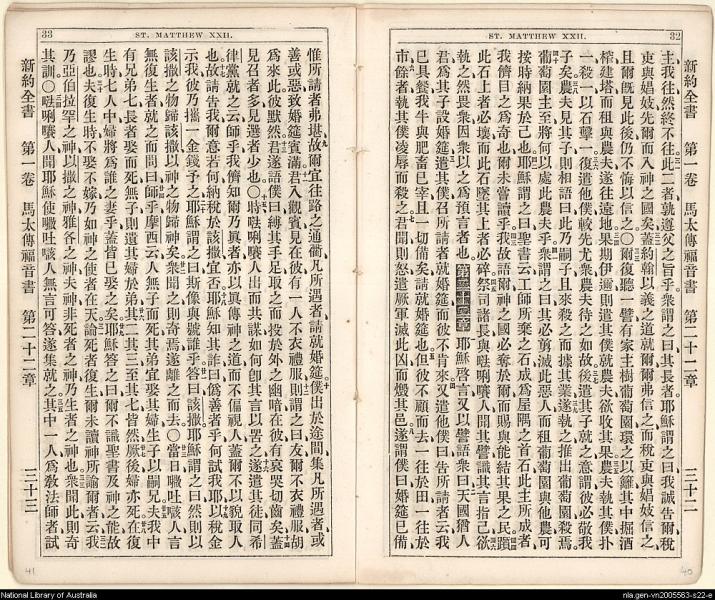 32
ST. MATTHEW XXII.
新約全書 第一卷 馬太傳福音書 第二十二章 三十二
主我往然終不往此二者孰遵父之旨乎衆謂之曰其長者耶穌謂之曰我誠告爾稅
吏與娼妓先爾而入神之國矣蓋約翰以義之道就爾爾弗信之而稅吏與娼妓信之
且爾旣見此後仍不悔以信之〇爾復聽一譬有家主樹葡萄園環之以籬其中掘酒
榨建塔而租與農夫遂往遠地果期伊邇則遣其僕就農夫欲收其果農夫執其僕扑
一殺一以石擊一復遣他僕較先尤衆農夫待之如故後遣其子就之意謂彼必敬我
子矣農夫見其子則相語曰此乃嗣子且來殺之而據其業遂執之推出葡萄園殺焉
葡萄園主至將何以處此農夫乎衆謂之曰其必剪滅此惡人而租葡萄園與他農可
按時納果於己也耶穌謂之曰聖書云工師所棄之石成爲屋隅之首石此主所成者
我儕目之爲奇也爾未嘗讀乎我故語爾神之國必奪於爾而賜與能結其果之民躓
此石上者必壞而此石墜其上者必碎祭司諸長與㖿唎㘔人聞其譬識其言指己欲
執之然畏衆因衆以之爲預言者也 第二十二章 耶穌啓言又以譬語衆曰天國猶人
君爲其子設婚筵遣其僕召所請者就婚筵而彼不肯來又遣他僕曰告所請者云我
已具餐我牛與肥畜已宰且一切備矣請就婚筵也但彼不顧而去一往於田一往於
市餘者執其僕凌辱而殺之君聞則怒遣厥軍滅此凶而燬其邑遂謂僕曰婚筵已備
33
ST. MATTHEW XXII.
惟所請者弗堪故爾宜往路之通衢凡所遇者請就婚筵僕出於途間集凡所遇者或
善或惡致婚筵賓滿君入觀賓見在彼有一人不衣禮服則謂之曰友爾不衣禮服胡
爲來此彼默然君遂語僕曰縛其手足取之而投於外之幽暗在彼有哀哭切齒矣蓋
見召者多見選者少也〇時㖿唎㘔人出而共謀如何即其言以罟之遂遣其徒同希
律黨就之云師乎我儕知爾乃眞者亦以眞傳神之道而不偏視人蓋爾不以貌取人
也故請告我爾意若何納稅於該撒宜否耶穌知其詐曰僞善者乎何試我耶以稅金
示我彼乃攜一金錢予之耶穌謂之曰斯像與號誰乎答曰該撒耶穌謂之曰然則以
該撒之物歸該撒以神之物歸神矣衆聞之則奇焉遂離之而去〇當日㘉吐㖠人言
無復生者就之而問曰師乎摩西云人無子而死其弟宜娶其婦生子以嗣兄夫我中
有兄弟七長者娶而死無子則遺其婦於弟其二其三至其七皆然厥後婦亦死在復
生時七人中婦將爲誰之妻乎蓋皆已娶之矣耶穌答之曰爾不識聖書及神之能故
謬也夫復生時不娶不嫁乃如神之使者在天論死者復生爾未讀神所諭爾者云我
乃亞伯拉罕之神以撒之神雅各之神夫神非死者之神乃生者之神也衆聞此則奇
其訓〇㖿唎㘔人聞耶穌使㘉吐㖠人無言可答遂集就之其中一人爲敎法師者試
新約全書 第一卷 馬太傳福音書 第二十二章 三十三
41
40
National Library of Australia
nla.gen-vn2005563-s22-e